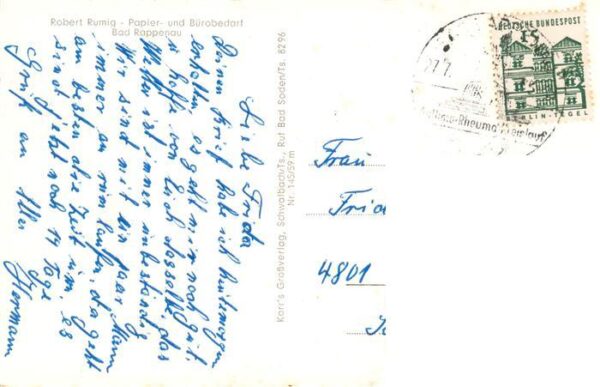 Robert Rumig - Papier- und Bürobedarf
Bad Rappenau
Liebe Frida
Deinen Brief habe ich heutmorgen
erhalten, es geht mir noch gut,
hoffe von Euch dasselbe, das
Wetter ist immer unbeständig
Wir sind mit ein paar Mann
immer am rum laufen, da geht
am besten die Zeit um, es
sind jetzt noch 14 Tage
Gruß an Alle
Hermann
Karr's Großverlag, Schwalbach/Ts., Ruf Bad Soden/Ts. 8296
Nr. 145/59 m
DEUTSCHE BUNDESPOST
15
BERLIN-TEGEL
27.7.
Frau
4801